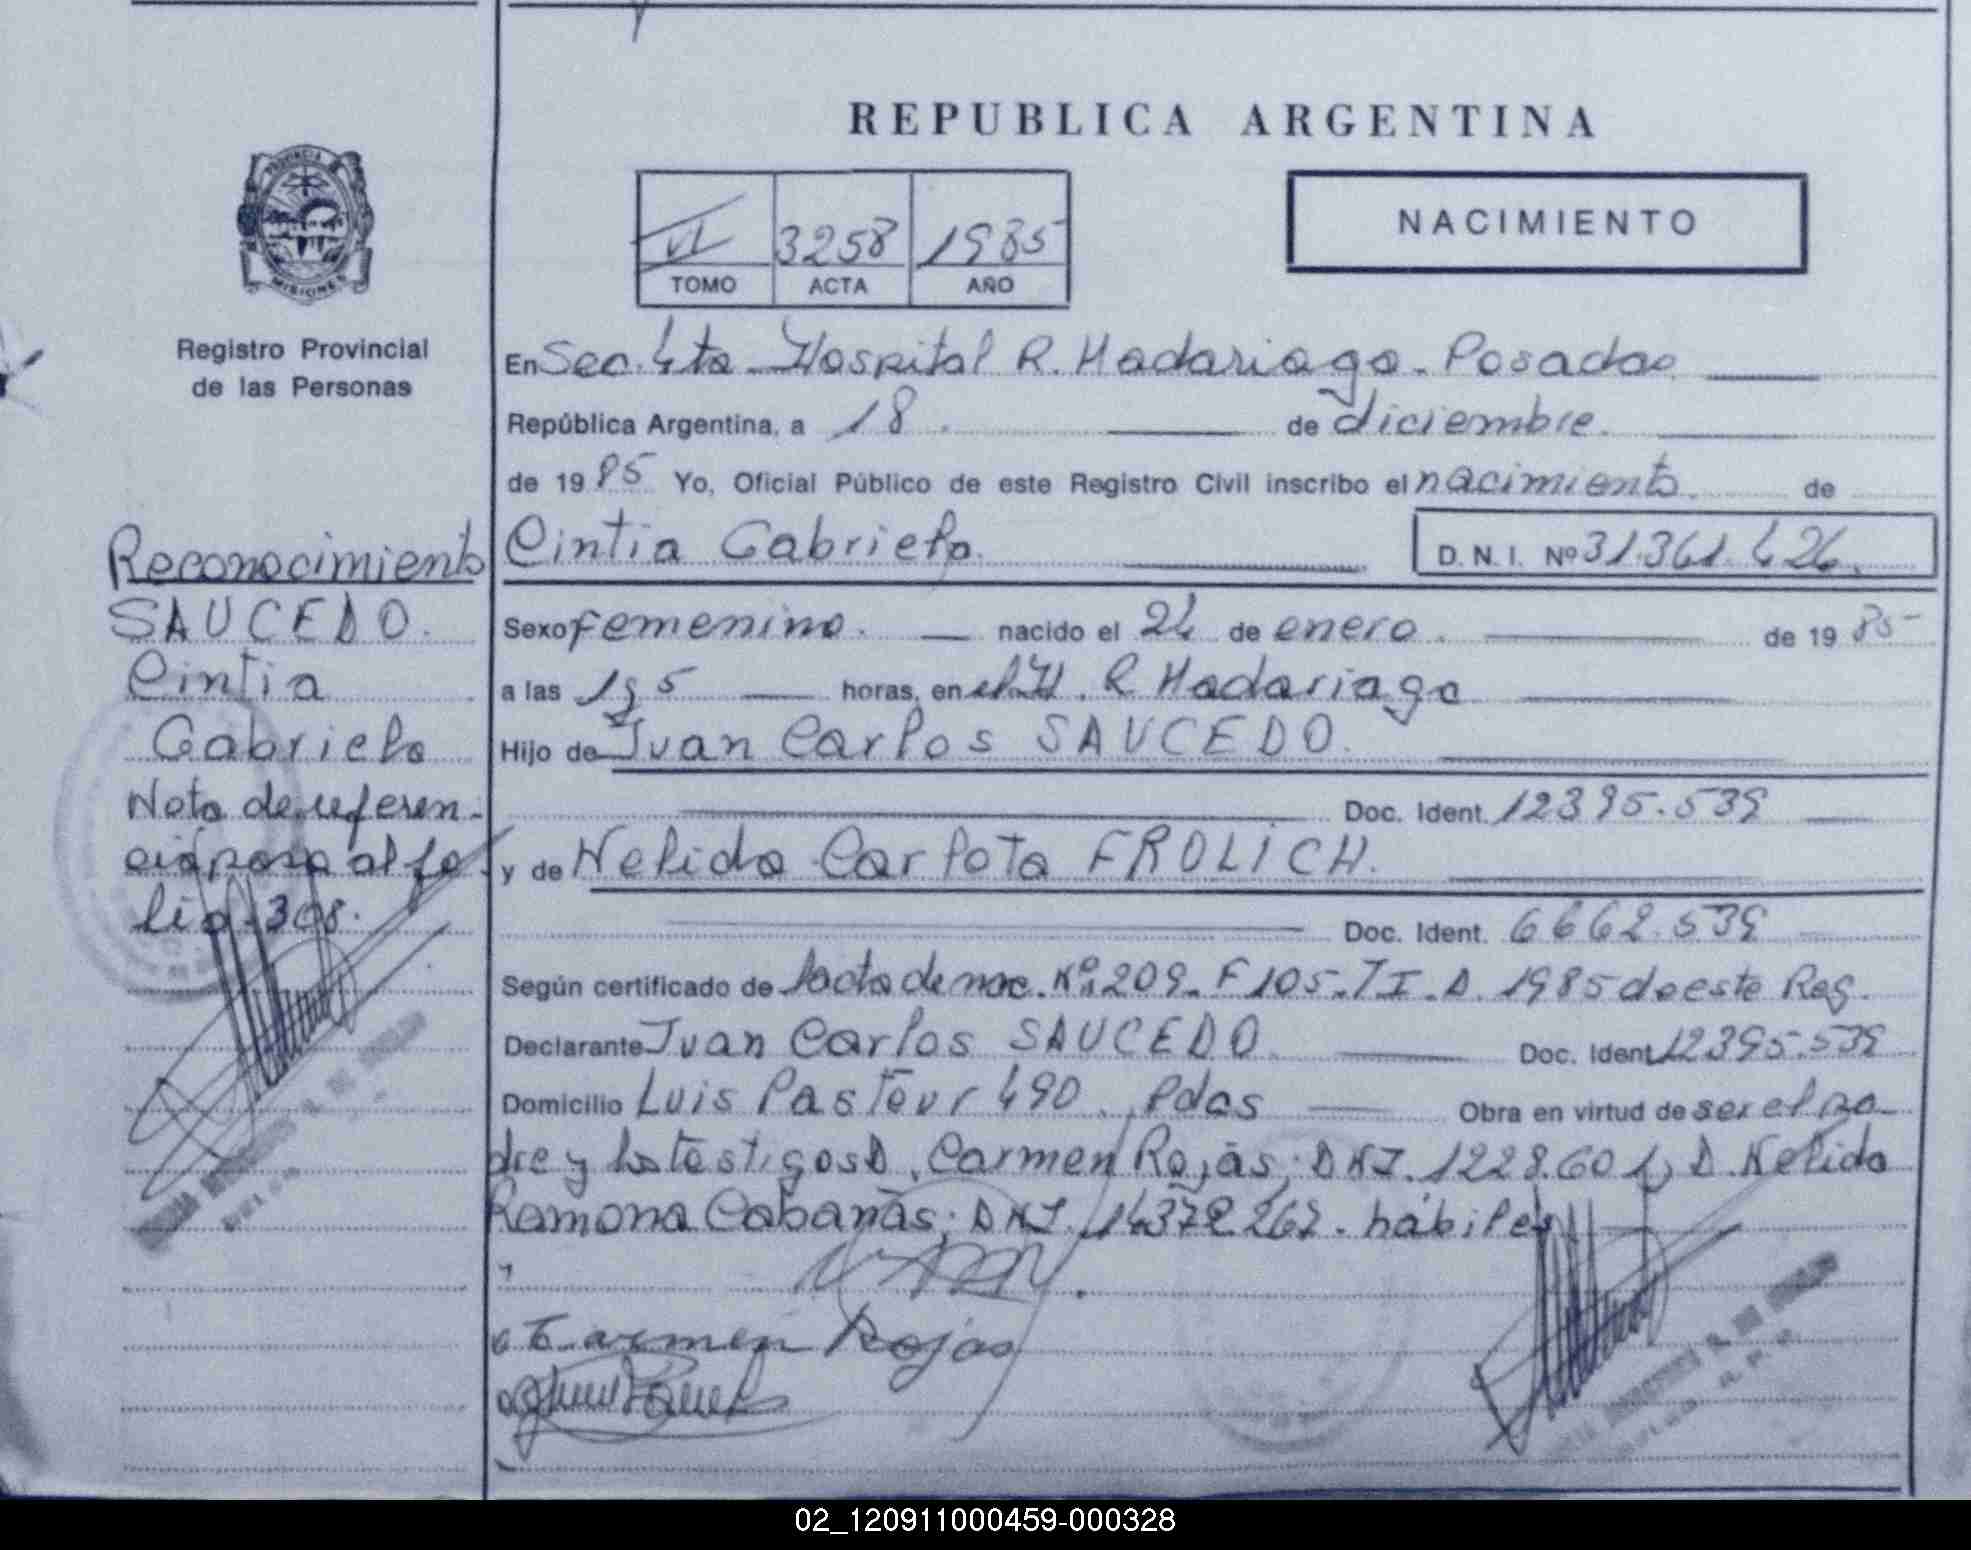 REPUBLICA ARGENTINA
PROVINCIA DE
MISIONES
VI 3258 1985
TOMO ACTA AÑO
NACIMIENTO
Registro Provincial
de las Personas
Reconocimiento
SAUCEDO.
Cintia
Gabriela
Nota de referen-
cia pasa al fo-
lio-308.
En Sec. 4ta. Hospital R. Madariaga. Posadas
República Argentina, a 18. de diciembre.
de 1985 Yo, Oficial Público de este Registro Civil inscribo el nacimiento. de
Cintia Gabriela. D. N. I. Nº 31.361.426.
Sexo femenino. nacido el 24 de enero. de 1985
a las horas, en el H. R Madariaga
Hijo de Juan Carlos SAUCEDO.
Doc. Ident. 12395.539
y de Nelida Carlota FROLICH.
Doc. Ident. 6662.539
Según certificado de acta de nac. Nº 209. F 105. T I. A. 1985 de este Reg.
Declarante Juan Carlos SAUCEDO. Doc. Ident 12395.539
Domicilio Luis Pasteur 490. Pdas Obra en virtud de ser el pa-
dre y los testigos D. Carmen Rojas; DNI. 1228.601, D. Nelida
Ramona Cabañas; DNI. 14372267. hábiles
Carmen Rojas
02_120911000459-000328